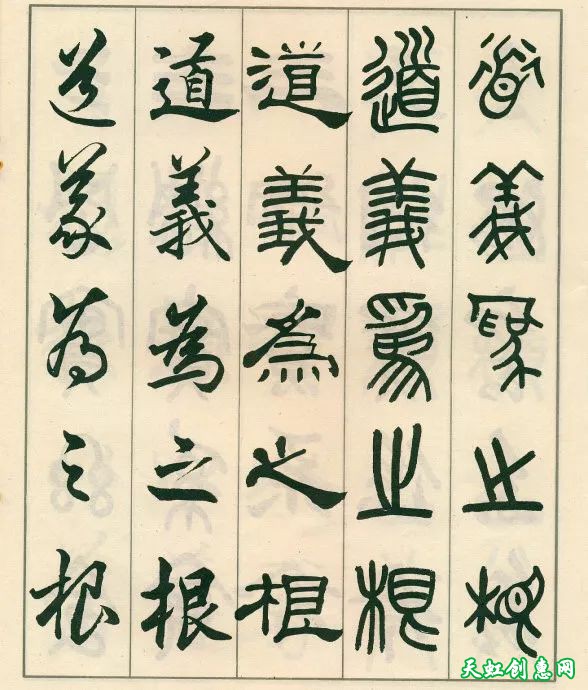 道義為之根
道義為之根
道義為之根
道義為之根
道義為之根
天虹创惠网